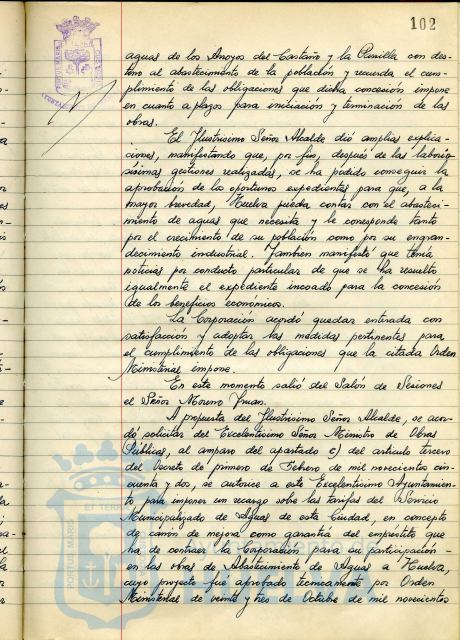 102
aguas de los Arroyos del Castaño y la Panilla con des-
tino al abastecimiento de la población y recuerda el cum-
plimiento de las obligaciones que dicha concesión impone
en cuanto a plazos para iniciación y terminación de las
obras.
El Ilustrísimo Señor Alcalde dió amplias explica-
ciones, manifestando que, por fin, después de las laborio-
sísimas gestiones realizadas, se ha podido conseguir la
aprobación de los oportunos expedientes para que, a la
mayor brevedad, Huelva pueda contar con el abasteci-
miento de aguas que necesita y le corresponde tanto
por el crecimiento de su población como por su engran-
decimiento industrial. Tambien manifestó que tenía
noticias por conducto particular de que se ha resuelto
igualmente el expediente incoado para la concesión
de los beneficios económicos.
La Corporación acordó quedar enterada con
satisfacción y adoptar las medidas pertinentes para
el cumplimiento de las obligaciones que la citada Orden
Ministerial impone.
En este momento salió del Salón de Sesiones
el Señor Moreno
A propuesta del Ilustrísimo Señor Alcalde, se acor-
dó solicitar del Excelentísimo Señor Ministro de Obras
Públicas, al amparo del apartado c) del artículo tercero
del Decreto de primero de Febrero de mil novecientos cin-
cuenta y dos, se autorice a este Excelentísimo Ayuntamien-
to para imponer un recargo sobre las tarifas del Servicio
Municipalizado de Aguas de esta Ciudad, en concepto
de canon de mejora como garantía del empréstito que
ha de contraer la Corporación para su participación
en las obras de Abastecimiento de Agua a Huelva,
cuyo proyecto fué aprobado técnicamente por Orden
Ministerial de veinte y tres de Octubre de mil novecientos